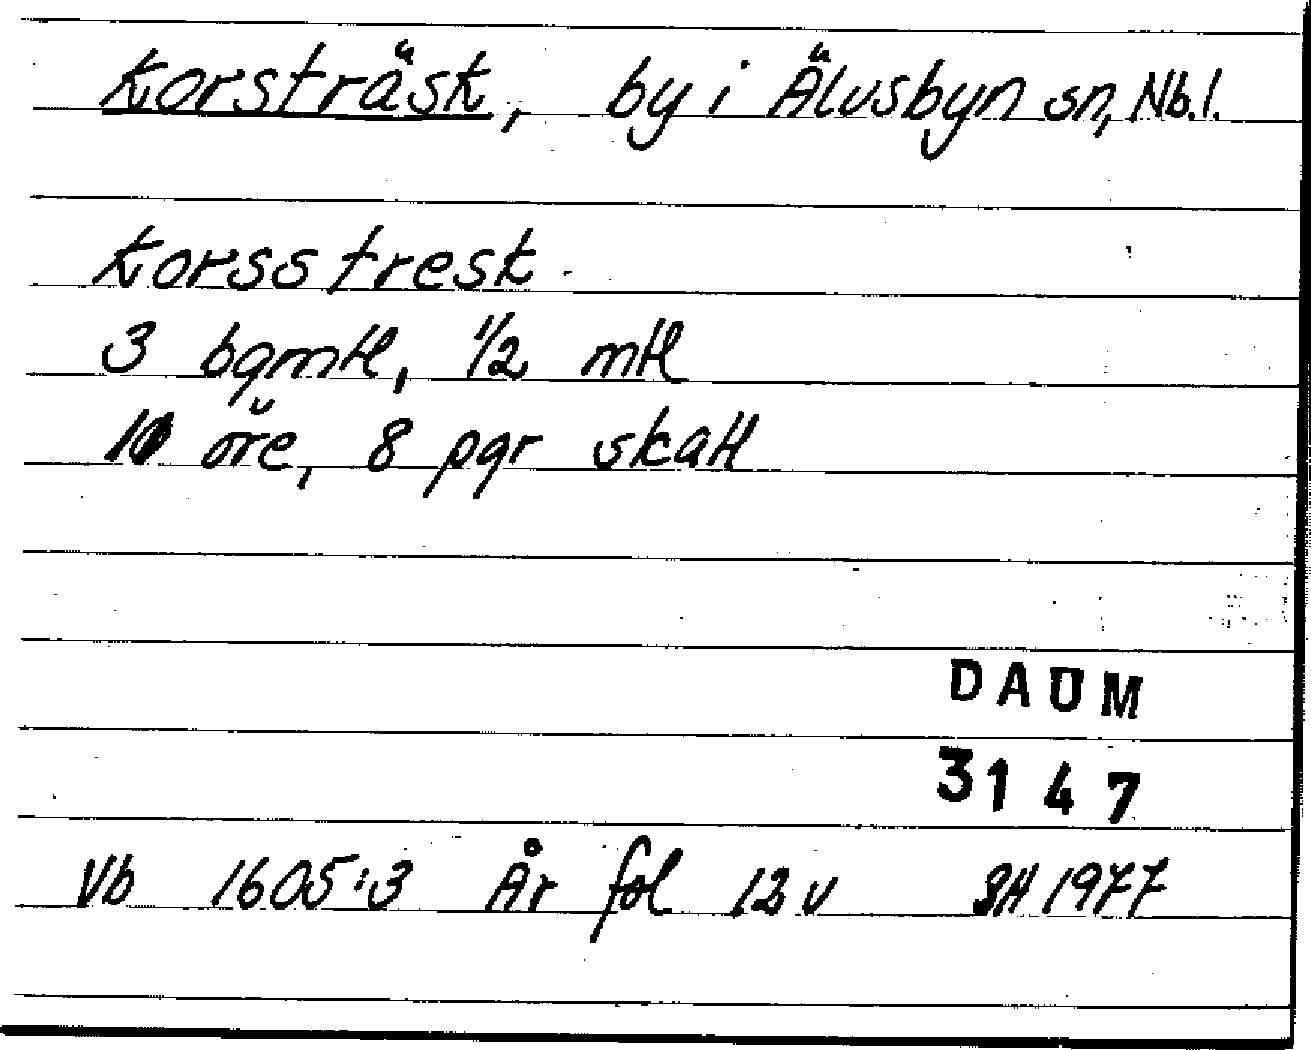 Korsträsk, by i Älvsbyn sn, Nb.l.
Korsstresk
3 bgmtl, 1/2 mtl
10 öre, 8 pgr skatt
DAUM
3147
Vb 1605:3 År fol 12 v SH 1977